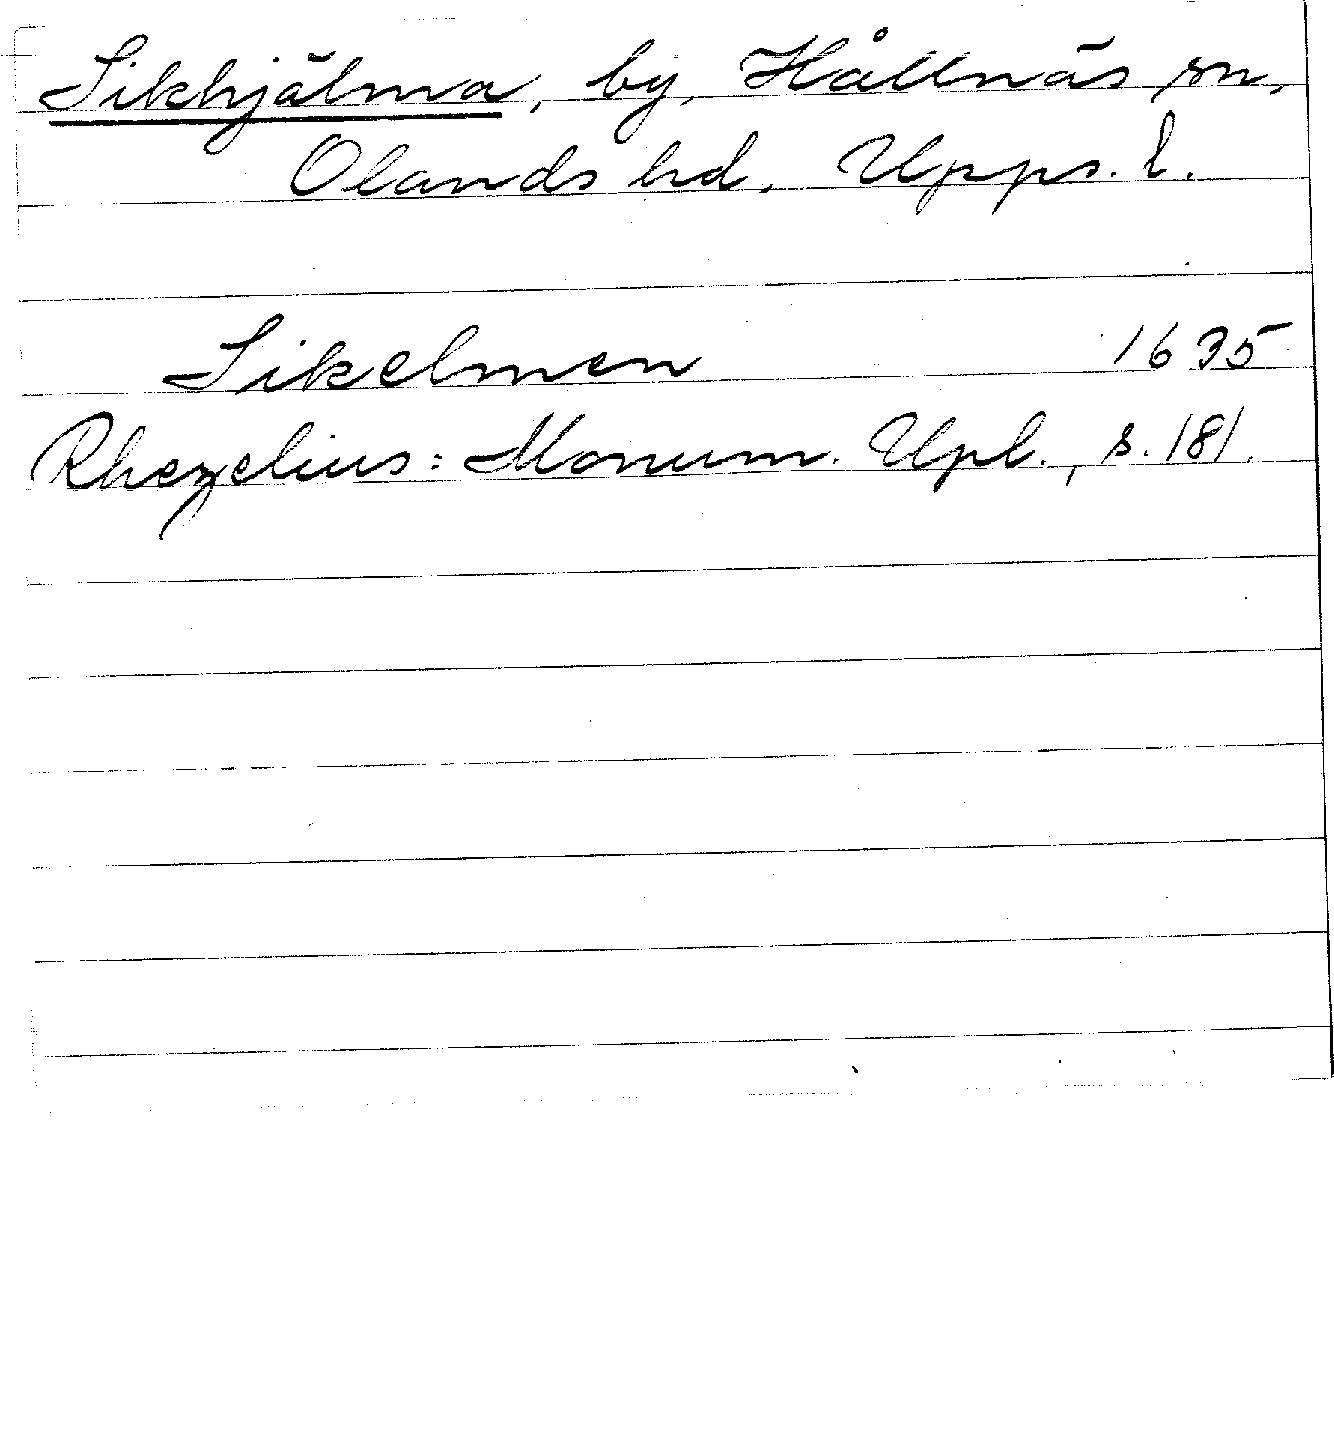 Sikhjälma, by, Hållnäs sn,
Olands hd. Upps. l.
Sikelmen 1635
Rhezelius: Monum. Upl., s. 181.